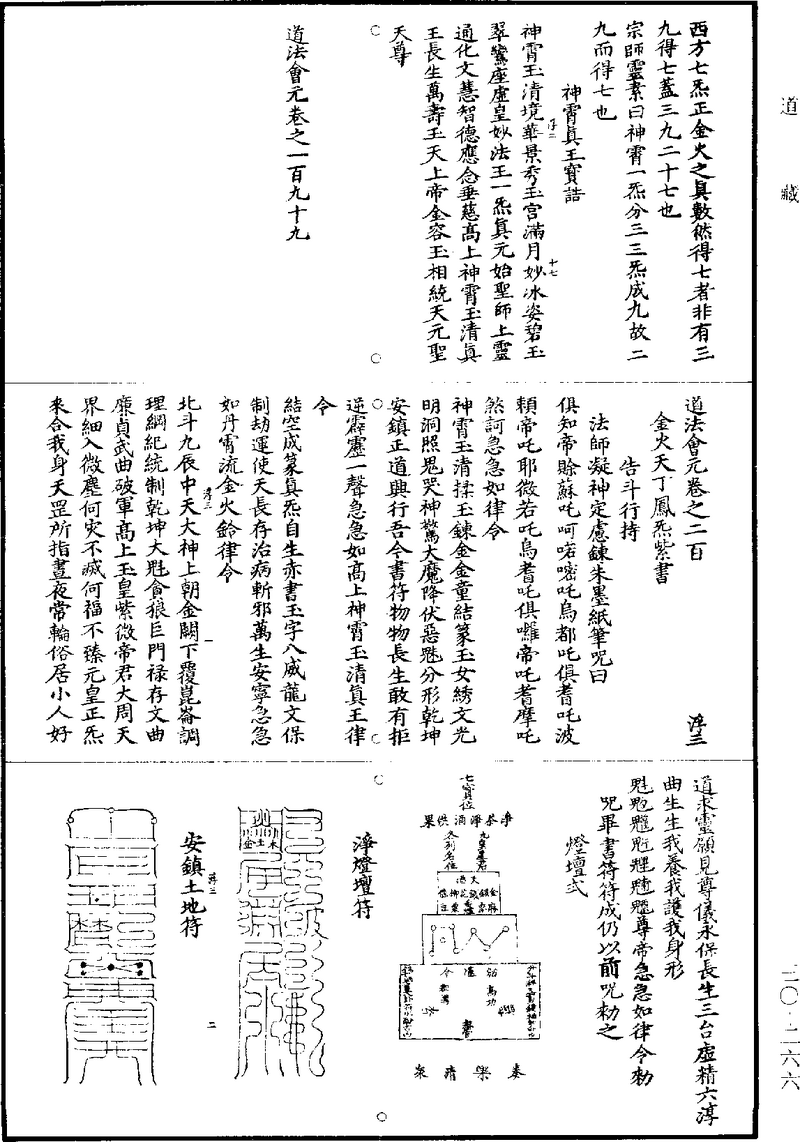 道藏
西方七炁正金火之真數然得七者非有三
九得七蓋三九二十七也
宗師靈素曰神霄一炁分三三炁成九故二
九而得七也
神霄真王寶誥
神霄玉清境華景秀玉宮滿月妙冰姿碧玉
翠鸞座虛皇妙法王一炁真元始聖師上靈
通化文慧智德應念垂慈高上神霄玉清真
王長生萬壽玉天上帝金容玉相統天元聖
天尊
道法會元卷之一百九十九
浮三
十七
道法會元卷之二百
浮三
金火天丁鳳炁紫書
告斗行持
法師凝神定慮鍊朱墨紙筆呪曰
俱知帝賒蘇吒呵喏嘧吒烏都吒俱耆吒波
頼帝吒耶微若吒烏耆吒俱囉帝吒耆摩吒
煞訶急急如律令
神霄玉清揉玉鍊金金童結篆玉女綉文光
明洞照鬼哭神驚大魔降伏惡魅分形乾坤
安鎮正道興行吾令書符物物長生敢有拒
逆霹靂一聲急急如高上神霄玉清真王律
令
結空成篆真炁自生赤書玉字八威龍文保
制劫運使天長存治病斬邪萬生安寧急急
如丹霄流金火鈴律令
北斗九辰中天大神上朝金闕下覆崑崙調
理綱紀統制乾坤大魁貪狼巨門祿存文曲
廉貞武曲破軍高上玉皇紫微帝君大周天
界細入微塵何灾不滅何福不臻元皇正炁
來合我身天罡所指晝夜常輪俗居小人好
浮三
一
道求靈願見尊儀永保長生三台虛精六淳
曲生生我養我護我身形
尊帝急急如律令勑
呪畢書符符成仍以前呪勑之
燈壇式
七寶位
淨茶淨酒供果
淨燈壇符
安鎮土地符
浮三
二
三〇·二六六